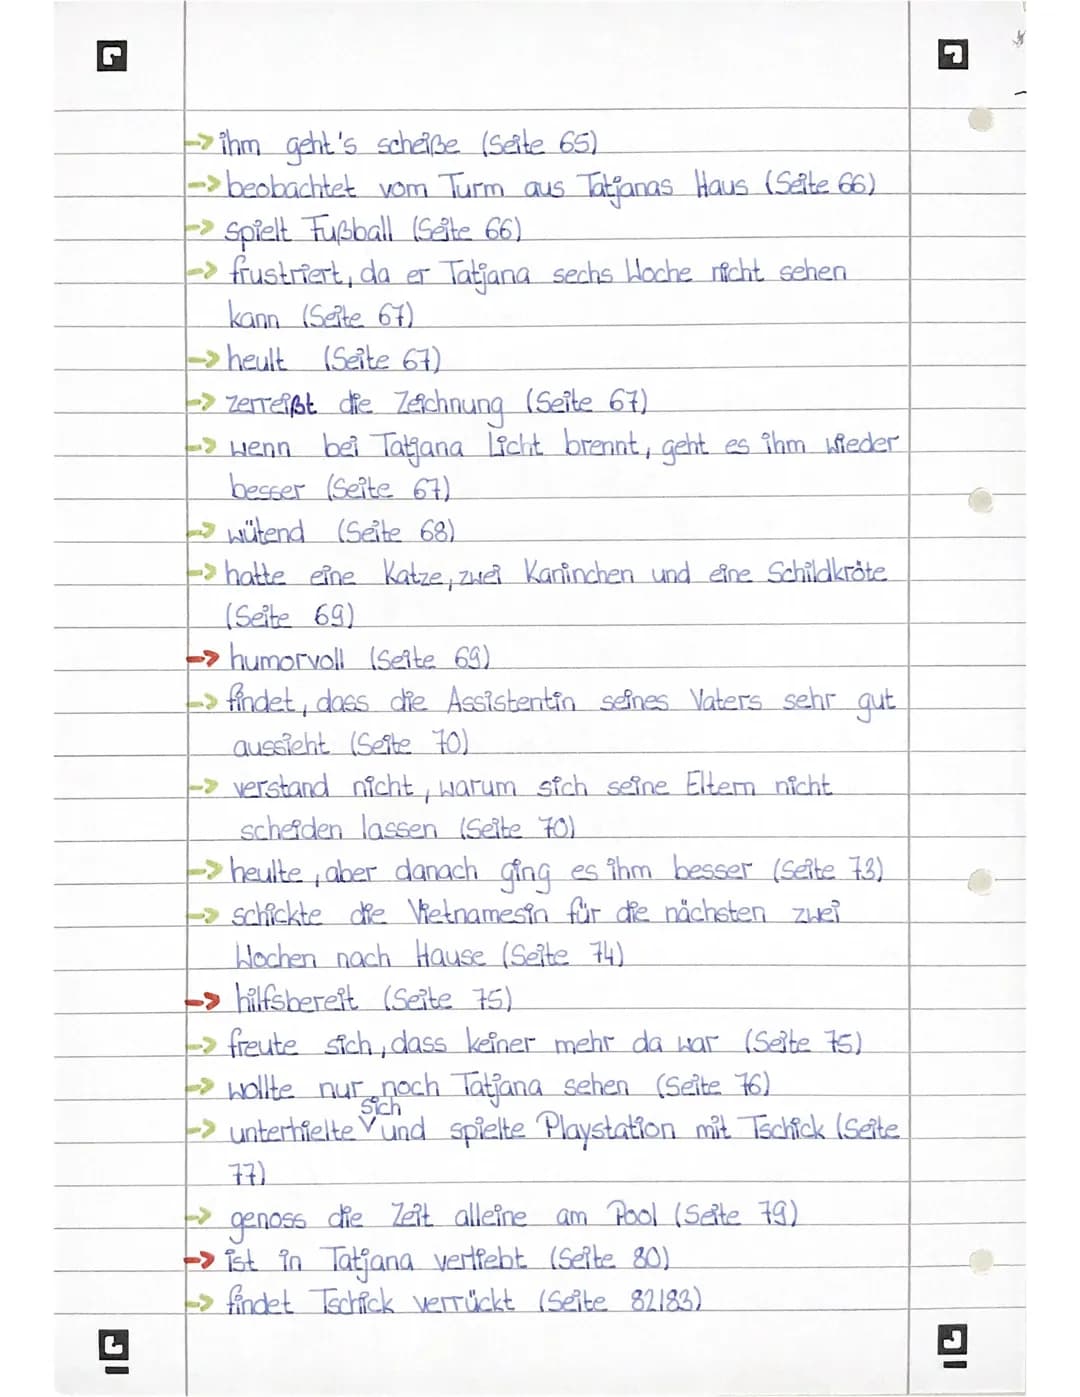 → ihm geht's scheiße (Seite 65)
→ beobachtet vom Turm aus Tatjanas Haus (Seite 66)
→ spielt Fußball (Seite 66)
→ frustriert, da er Tatjana sechs Woche nicht sehen
kann (Seite 67)
→ heult (Seite 67)
→ zerreißt die Zeichnung (Seite 67)
→ wenn bei Tatjana Licht brennt, geht es ihm wieder
besser (Seite 67)
→ wütend (Seite 68)
→ hatte eine Katze, zwei Kaninchen und eine Schildkröte
(Seite 69)
→ humorvoll (Seite 69)
→ findet, dass die Assistentin seines Vaters sehr gut
aussieht (Seite 70)
→ verstand nicht, warum sich seine Eltern nicht
scheiden lassen (Seite 70)
→ heulte, aber danach ging es ihm besser (Seite 73)
→ schickte die Vietnamesin für die nächsten zwei
Wochen nach Hause (Seite 74)
→ hilfsbereit (Seite 75)
→ freute sich, dass keiner mehr da war (Seite 75)
→ wollte nur noch Tatjana sehen (Seite 76)
→ unterhielte sich und spielte Playstation mit Tschick (Seite
77)
→ genoss die Zeit alleine am Pool (Seite 79)
→ ist in Tatjana verliebt (Seite 80)
→ findet Tschick verrückt (Seite 82/83)